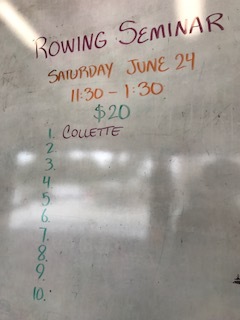 ROWING SEMINAR
SATURDAY JUNE 24
11:30 - 1:30
$20
1. COLLETTE
2.
3.
4
5
6
7.
8.
9.
10.